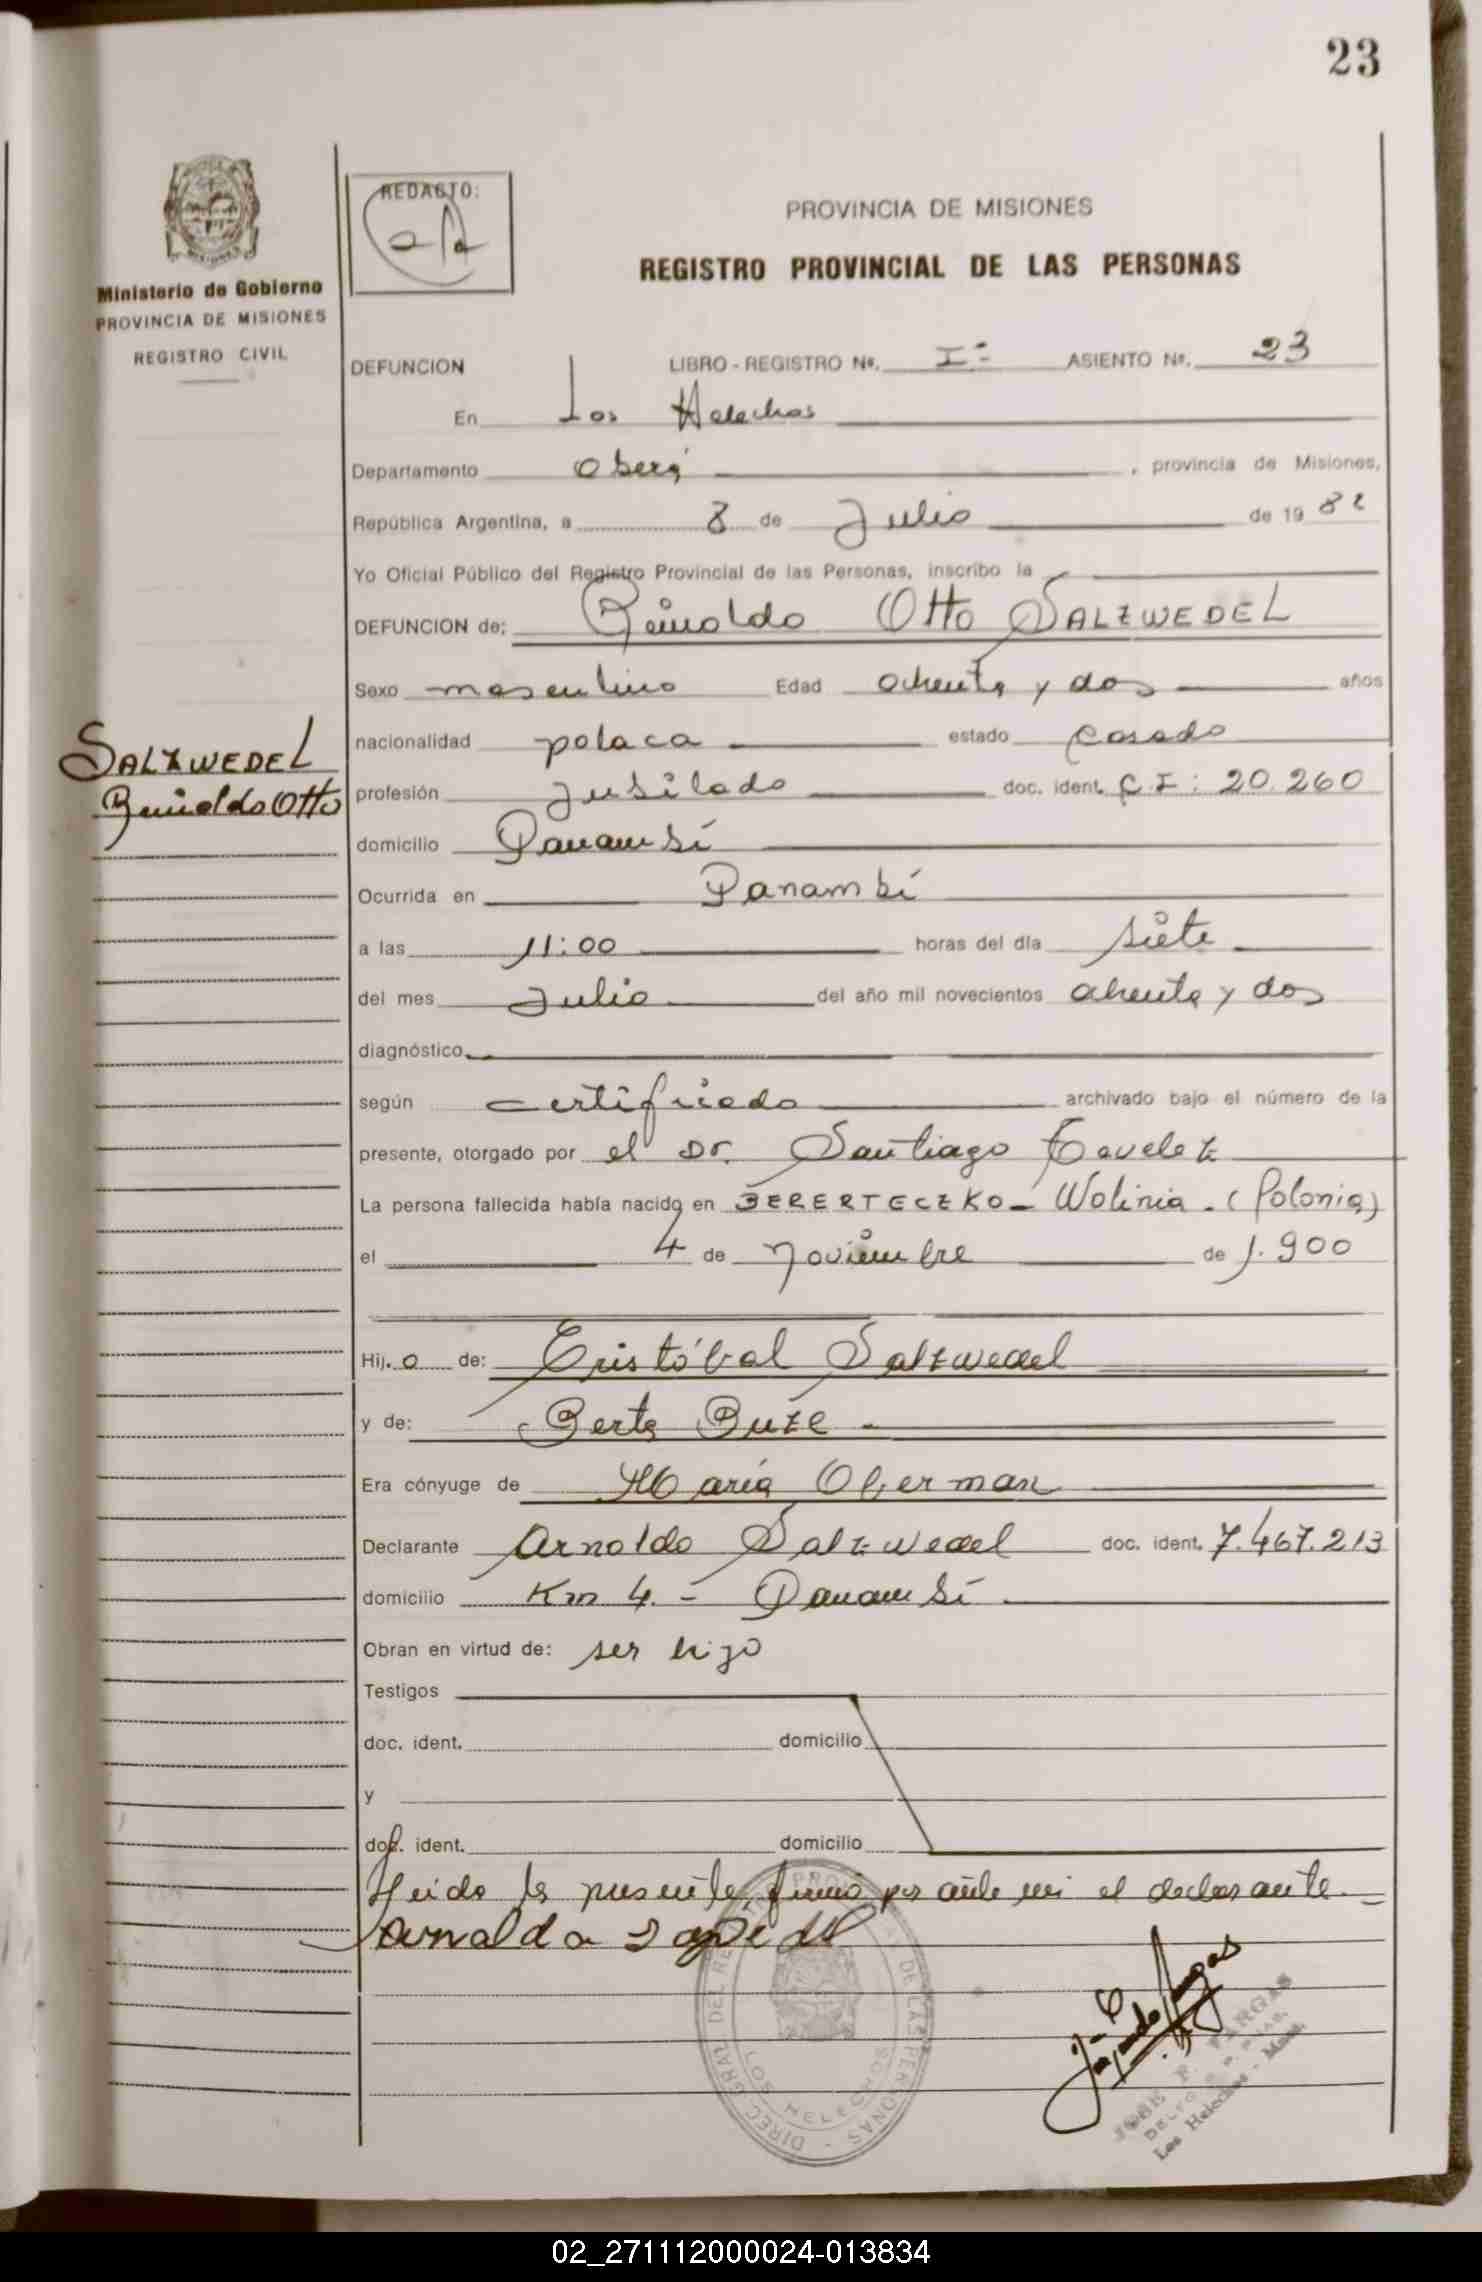 23
Ministerio de Gobierno
PROVINCIA DE MISIONES
REGISTRO CIVIL
REDACTO:
PROVINCIA DE MISIONES
REGISTRO PROVINCIAL DE LAS PERSONAS
DEFUNCION LIBRO - REGISTRO Nº. Iº ASIENTO Nº. 23
En Los Helechos
Departamento Oberá, provincia de Misiones,
República Argentina, a 8 de Julio de 19 82
Yo Oficial Público del Registro Provincial de las Personas, inscribo la
DEFUNCION de: Reinoldo Otto SALZWEDEL
Sexo masculino Edad ochenta y dos años
SALZWEDEL
Reinoldo Otto
nacionalidad polaca estado casado
profesión Jubilado doc. ident. C.I: 20.260
domicilio Panambí
Ocurrida en Panambí
a las 11:00 horas del día siete
del mes Julio del año mil novecientos ochenta y dos
diagnóstico
según certificado archivado bajo el número de la
presente, otorgado por el Dr. Santiago
La persona fallecida había nacido en BERERTECZKO - Wolinia - (Polonia)
el 4 de Noviembre de 1.900
Hij. o de: Cristóbal Salzwedel
y de: Berta Buze -
Era cónyuge de María Oberman
Declarante Arnoldo Salzwedel doc. ident. 7.467.213
domicilio Km 4. - Panambí
Obran en virtud de: ser hijo
Testigos
doc. ident. domicilio
y
doc. ident. domicilio
Leída la presente, firmó por ante mi el declarante -
DIREC. GRAL. DEL REGISTRO PROVINCIAL DE LAS PERSONAS -
LOS HELECHOS
JOSE F. VARGAS
Los Helechos - Mnes.
02_271112000024-013834